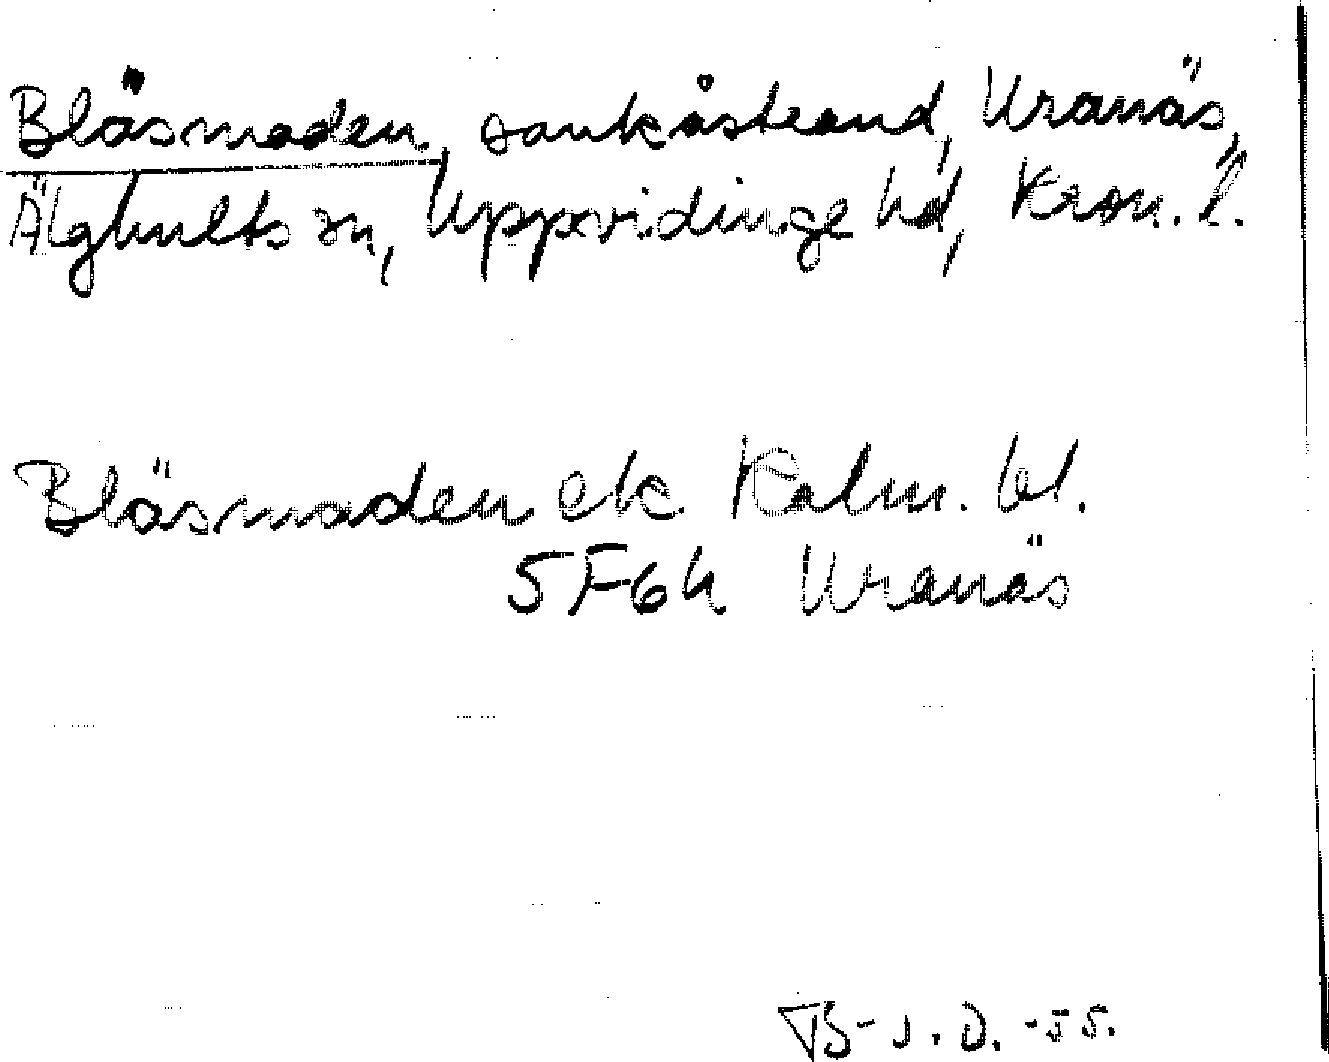 Bläsmaden, sankåstrand, Uranäs,
Älghults sn, Uppvidinge hd, Kron. l.
Bläsmaden ek. Kalm. bl.
5F6h Uranäs
B-J.D. -55.